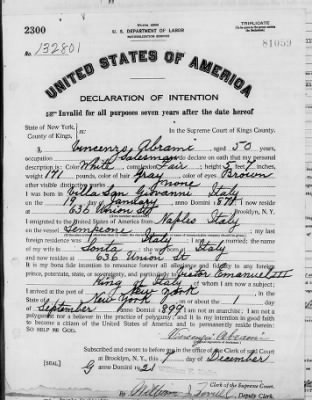 2300
TRIPLICATE
U. S. DEPARTMENT OF LABOR
NATURALIZATION SERVICE
No. 132801
81059
UNITED STATES OF AMERICA
DECLARATION OF INTENTION
Invalid for all purposes seven years after the date hereof
State of New York,
County of Kings, ss:
In the Supreme Court of Kings County.
I, Vincenzo Abrami, aged 50 years,
occupation Salesman, do declare on oath that my personal
description is: Color White, complexion Fair, height 5 feet inches,
weight 171 pounds, color of hair Gray, color of eyes Brown
other visible distinctive marks none
I was born in Villa San Giovanni Italy
on the 19 day of January, anno Domini 1871; I now reside
at 636 Union St, Brooklyn, N. Y.
I emigrated to the United States of America from Naples Italy
on the vessel Sempione; my last
foreign residence was Italy; I am married; the name
of my wife is; she was born at Italy
and now resides at 636 Union St
It is my bona fide intention to renounce forever all allegiance and fidelity to any foreign
prince, potentate, state, or sovereignty, and particularly to Victor Emanuel III
King of Italy, of whom I am now a subject;
I arrived at the port of New York, in the
State of New York, on or about the 1 day
of September, anno Domini 1899; I am not an anarchist; I am not a
polygamist nor a believer in the practice of polygamy; and it is my intention in good faith
to become a citizen of the United States of America and to permanently reside therein:
SO HELP ME GOD.
Vincenzo Abrami
Subscribed and sworn to before me in the office of the Clerk of said Court
at Brooklyn, N. Y., this 1 day of December
[SEAL]
anno Domini 1921
Clerk of the Supreme Court.
By, Deputy Clerk.